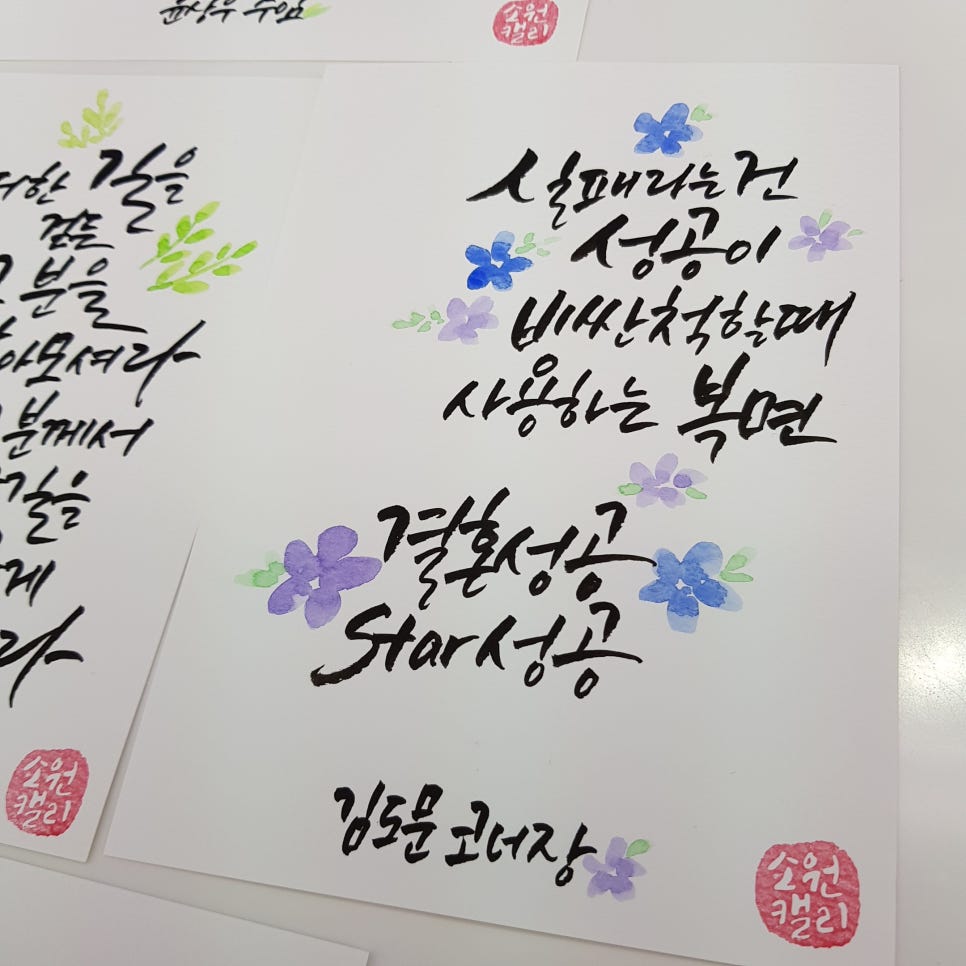 윤상우 수임
소원
캘리
길을
걷는
분을
모셔라
분께서
길음
게
라
소원
캘리
실패라는건
성공이
비싼척할때
사용하는 복면
결혼성공
Star성공
김도문 코너장
소원
캘리